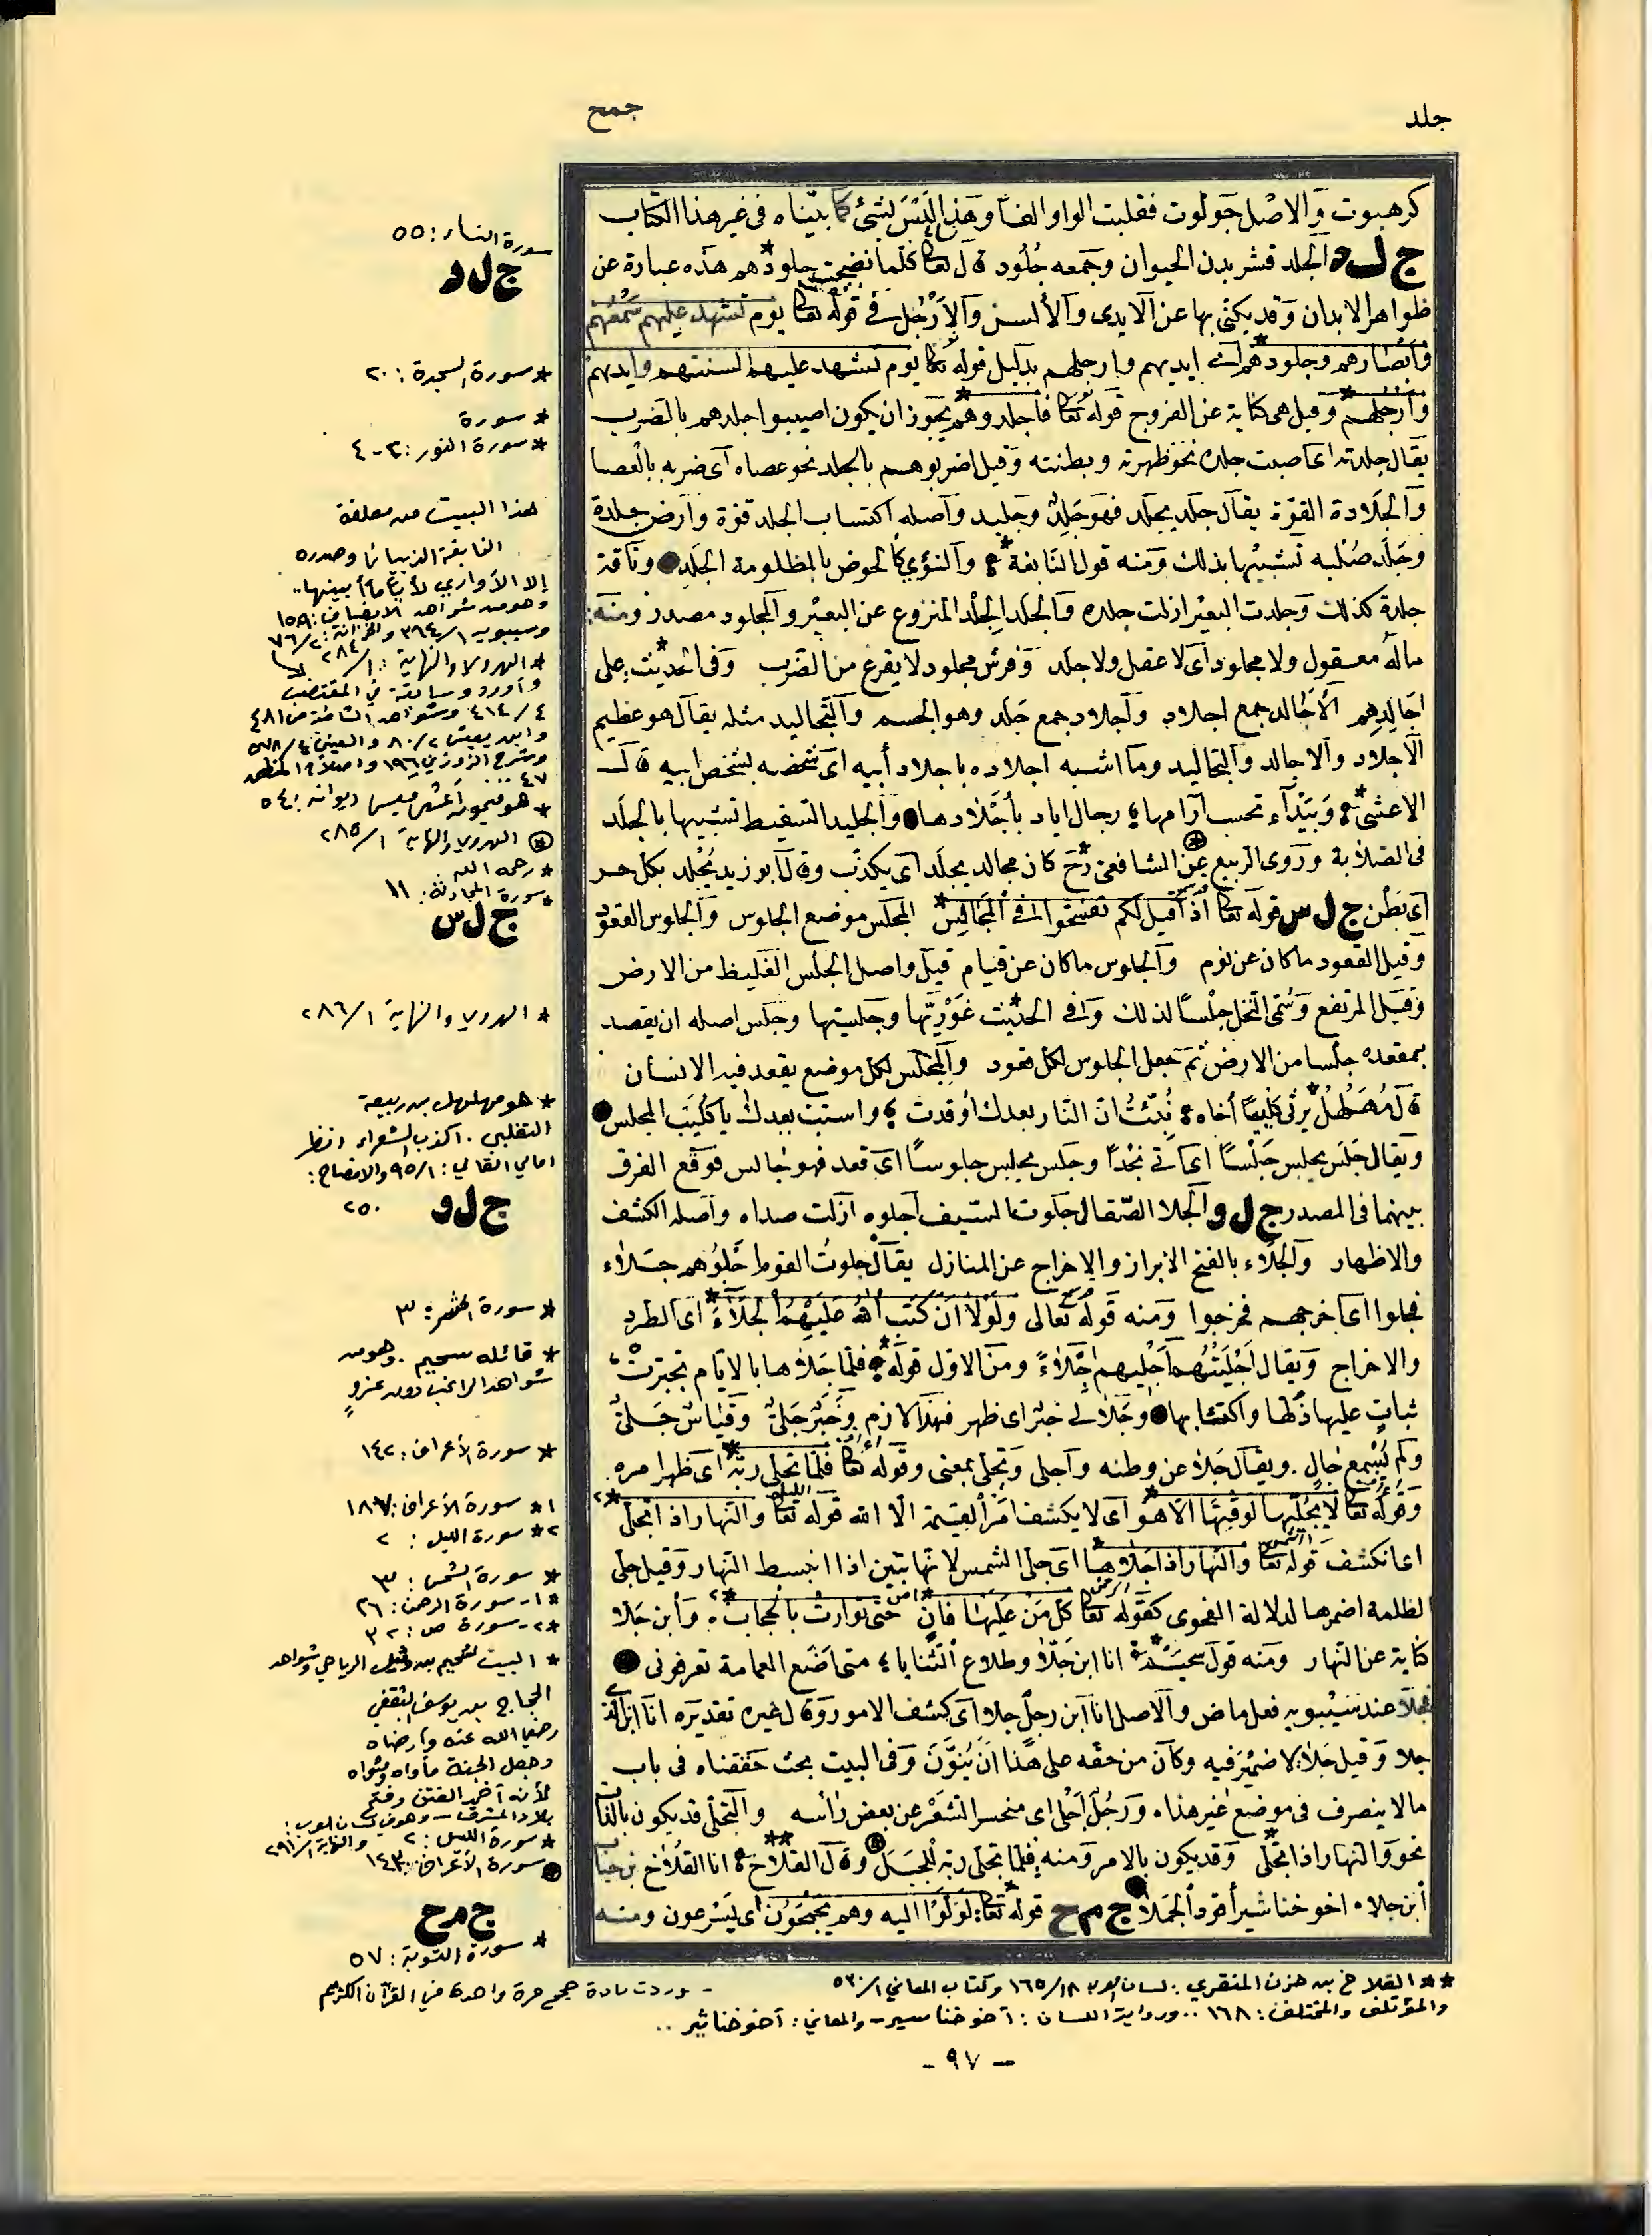 جلد
جمح
كرهبوت والاصل جولوت فقلبت الواو الفا وهذا ليس لشئ كما بيناه فى غير هذا الكتاب
ج ل د الجلد قشر بدن الحيوان وجمعه جلود قال تعا كلما نضجت جلودهم هذه عبارة عن
ظواهر الابدان وقد يكنى بها عن الايدى والألسن والأرجل فى قوله تعا يوم تشهد عليهم سمعهم
وأبصارهم وجلودهم اى ايديهم وارجلهم بدليل قوله تعا يوم تشهد عليهم السنتهم وايديهم
وأرجلهم وقيل هى كناية عن الفروج قوله تعا فاجلدوهم يجوز ان يكون اصيبوا جلدهم بالضرب
يقال جلدته اى اصبت جلده نحو ظهرته وبطنته وقيل اضربوهم بالجلد نحو عصاه أى ضربه بالعصا
والجلادة القوة يقال جلد يجلد فهو جلد وجليد وأصله اكتساب الجلد قوة وأرض جلدة
وجلد صلبه تشبيها بذلك ومنه قول النابغة والنؤي كالحوض بالمظلومة الجلد وناقة
جلدة كذلك وجلدت البعير ازلت جلده والجلد الجلد المنزوع عن البعير والمجلود مصدر ومنه:
ماله معقول ولا مجلود أى لا عقل ولا جلد وفرس مجلود لا يفزع من الضرب وفى الحديث: على
اجالدهم الأجالد جمع اجلاد وأجلاد جمع جلد وهو الجسم والتجاليد مثله يقال هو عظيم
الأجلاد والاجالد والتجاليد وما اشبه اجلاده باجلاد أبيه اى شخصه بشخص ابيه قال
الاعشى وبيداء تحسب آرامها رجال اياد بأجلادها والجليد السقيط تشبيها بالجلد
فى الصلابة وروى الربيع عن الشافعى رح كان مجالد يجلد أى يكذب وقال أبو زيد يجلد بكل خير
أى يظن ج ل س قوله تعا اذا قيل لكم تفسحوا فى المجالس المجلس موضع الجلوس والجلوس القعود
وقيل القعود ما كان عن نوم والجلوس ما كان عن قيام قيل واصل الجلس الغليظ من الارض
وقيل المرتفع وسمى النخل جلسا لذلك وفى الحديث غوريها وجلسيها وجلس اصله ان يقصد
بمقعده جلسا من الارض ثم جعل الجلوس لكل قعود والمجلس لكل موضع يقعد فيه الانسان
قال مهلهل يرثى كليبا أخاه نبئت ان النار بعدك أوقدت واستب بعدك يا كليب المجلس
ويقال جلس يجلس جلسا اى اتى نجدا وجلس يجلس جلوسا اى قعد فهو جالس فوقع الفرق
بينهما فى المصدر ج ل و الجلا الصقال جلوت السيف أجلوه أزلت صداه وأصله الكشف
والاظهار والجلاء بالفتح الابراز والاخراج عن المنازل يقال جلوت القوم اجلوهم جلاء
فجلوا اى اخرجهم فخرجوا ومنه قوله تعالى ولولا ان كتب الله عليهم الجلاء اى الطرد
والاخراج ويقال اجليتهم أجليهم اجلاء ومن الاول قوله فلما جلاها بالايام تحيزت
ثبات عليها ذلها واكتئابها وجلا لى خبر اى ظهر فهذا لازم وخبر جلى وقياس جلى
ولم يسمع جال. ويقال جلا عن وطنه وأجلى وتجلى بمعنى وقوله تعا فلما تجلى ربه اى ظهر امره
وقوله تعا لا يجليها لوقتها الا هو اى لا يكشف امر القيمة الا الله قوله تعا والنهار اذا تجلى
اى انكشف قوله تعا والنهار اذا جلاها اى جلى الشمس لانها تبين اذا انبسط النهار وقيل جلى
الظلمة اضمرها لدلالة الفحوى كقوله تعا كل من عليها فان حتى توارت بالحجاب. وأبن جلا
كناية عن النهار ومنه قول سحيم انا ابن جلا وطلاع الثنايا متى اضع العمامة تعرفونى
فجلا عند سيبويه فعل ماض والاصل انا ابن رجل جلا أى كشف الامور وقال غيره تقديره انا ابن الذى
جلا وقيل جلا لا ضمير فيه وكان من حقه على هذا ان ينون وفى البيت بحث حققناه فى باب
ما لا ينصرف فى موضع غير هذا. ورجل أجلى اى منحسر الشعر عن بعض رأسه والتجلى قد يكون بالذات
نحو والنهار اذا تجلى وقد يكون بالامر ومنه فلما تجلى ربه للجبل وقال القلاخ انا القلاخ بن جناب
ابن جلا اخو خناشير أقود الجملا ج م ح قوله تعا: لولوا اليه وهم يجمحون اى يسرعون ومنه
سورة النساء: ٥٥
ج ل د
* سورة السجدة: ٢٠
* سورة
* سورة النور: ٢-٤
هذا البيت من معلقة
النابغة الذبياني وصدره
إلا الأواري لأيا ما أبينها..
وهو من شواهد الايضاح: ١٥٨
وسيبويه ١/٣٦٤ والخزانة: ٢/٧٦
* الهروي والنهاية: ١/٢٨٤
* هو ميمون أعشى قيس ديوانه: ٥٤
الهروي والنهاية ١/٢٨٥
* رحمه الله
* سورة المجادلة: ١١
ج ل س
* الهروي والنهاية ١/٢٨٦
* هو مهلهل بن ربيعة
التغلبي. اكذب الشعراء انظر
امالي القالي: ١/٩٥ والافصاح:
٢٥٠
ج ل و
* سورة الحشر: ٣
* قائله سحيم. وهو من
شواهد الراغب دون عزو
* سورة الأعراف: ١٤٢
*١ سورة الأعراف: ١٨٧
*٢ سورة الليل: ٢
* سورة الشمس: ٣
*١- سورة الرحمن: ٢٦
*٢- سورة ص: ٣٢
* البيت لسحيم بن وثيل الرياحي وشواهد
الحجاج بن يوسف الثقفي
رضي الله عنه وأرضاه
وجعل الجنة مأواه ومثواه
لأنه أخمد الفتن وفتح
بلاد المشرق - وهو في لسان العرب:
والنهاية ١/٢٩١
* سورة الليل: ٢
سورة الأعراف: ١٤٣
ج م ح
* سورة التوبة: ٥٧
** القلاخ بن حزن المنقري: لسان العرب ١٨/١٦٥ وكتاب المعاني ١/٥٣٠
- وردت مادة جمح مرة واحدة في القرآن الكريم
والمؤتلف والمختلف: ١٦٨.. ورواية اللسان: أخو خناسير - والمعاني: أخو خناثير..
- ٩٧ -